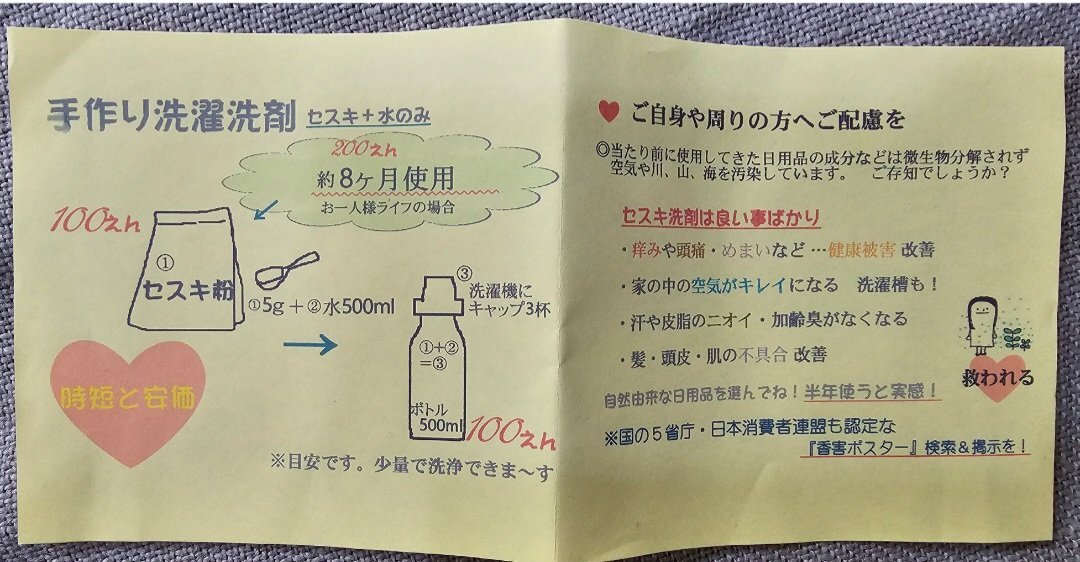 手作り洗濯洗剤 セスキ+水のみ
200えん
約8ヶ月使用
お一人様ライフの場合
100えん
①
セスキ粉
①5g+②水500ml
③
洗濯機に
キャップ3杯
①+②
=③
ボトル
500ml
100えん
時短と安価
※目安です。少量で洗浄できま〜す
ご自身や周りの方へご配慮を
◎当たり前に使用してきた日用品の成分などは微生物分解されず
空気や川、山、海を汚染しています。 ご存知でしょうか?
セスキ洗剤は良い事ばかり
・痒みや頭痛・めまいなど…健康被害 改善
・家の中の空気がキレイになる 洗濯槽も!
・汗や皮脂のニオイ・加齢臭がなくなる
・髪・頭皮・肌の不具合 改善
救われる
自然由来な日用品を選んでね!半年使うと実感!
※国の5省庁・日本消費者連盟も認定な
『香害ポスター』検索&掲示を!